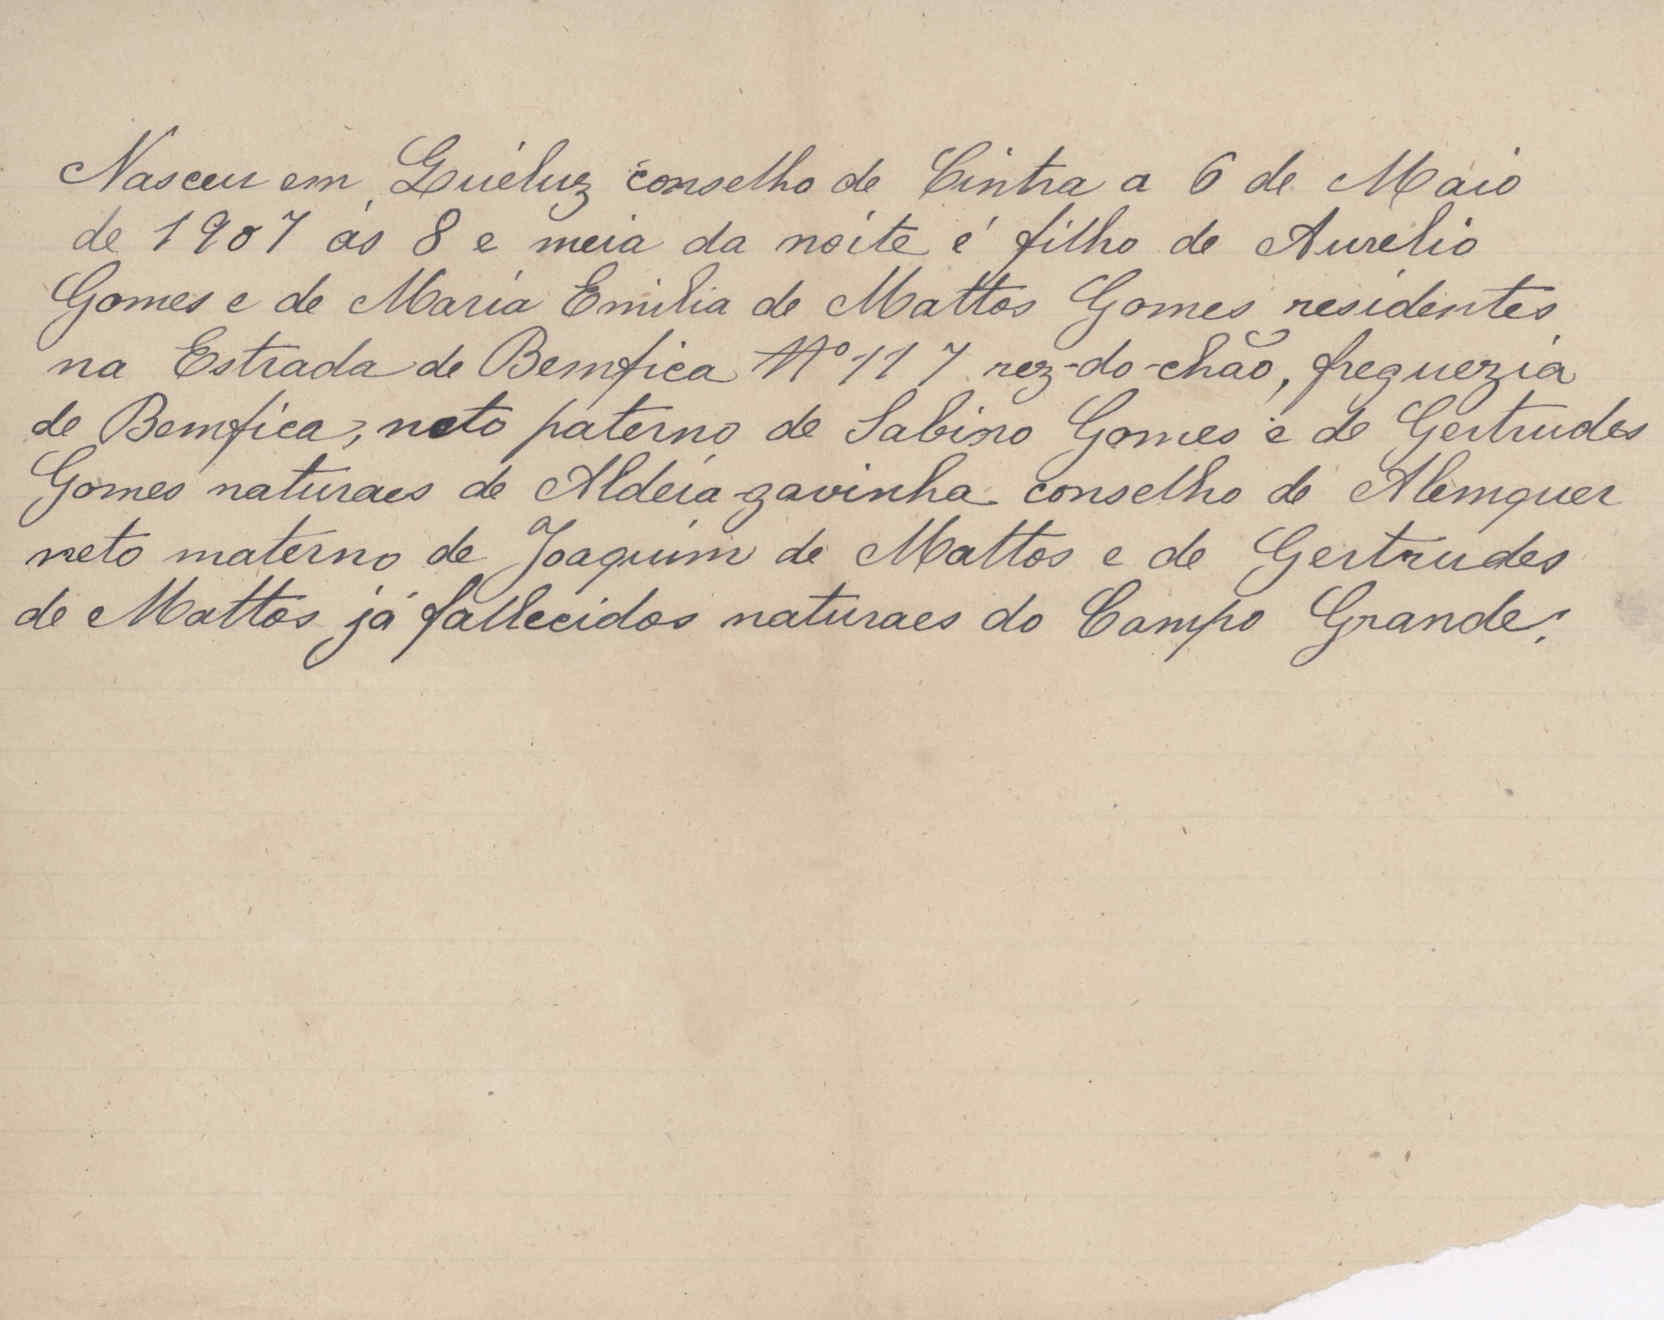 Nasceu em Queluz conselho de Cintra a 6 de Maio
de 1907 ás 8 e meia da noite é filho de Aurelio
Gomes e de Maria Emilia de Mattos Gomes residentes
na Estrada de Bemfica Nº 117 rez-do-chão, freguezia
de Bemfica, neto paterno de Sabino Gomes e de Gertrudes
Gomes naturaes de Aldeia gavinha conselho de Alemquer
neto materno de Joaquim de Mattos e de Gertrudes
de Mattos já fallecidos naturaes do Campo Grande.